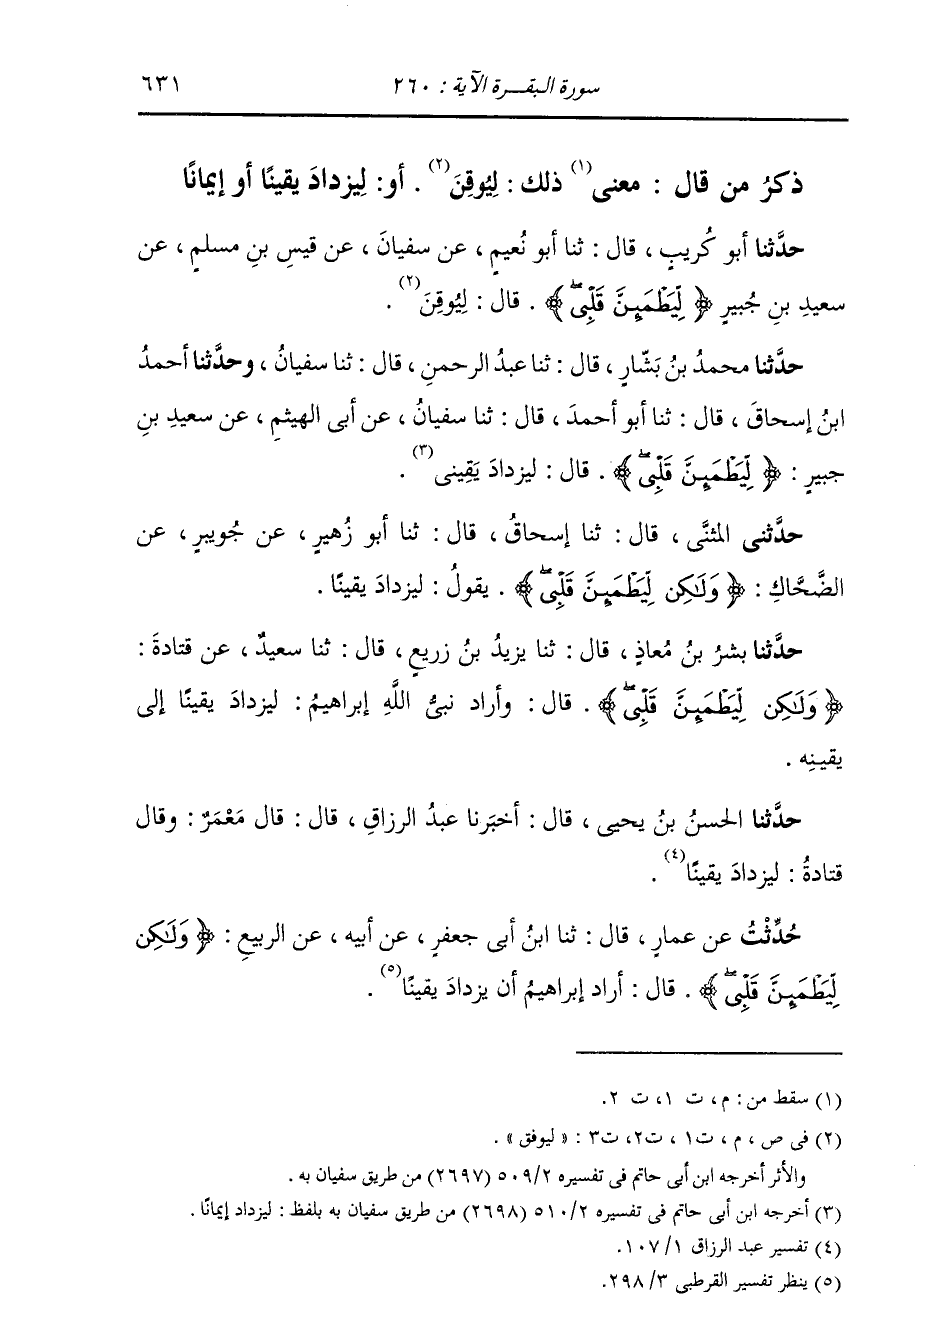 سورة البقـــرة الآية : ٢٦٠
٦٣١
ذكرُ من قال : معنى(١) ذلك : لِيُوقِنَ(٢) . أو: لِيزدادَ يقينًا أو إيمانًا
حدَّثنا أبو كُريبٍ ، قال : ثنا أبو نُعيمٍ ، عن سفيانَ ، عن قيسِ بنِ مسلمٍ ، عن
سعيدِ بنِ جُبيرٍ ﴿ لِّيَطْمَئِنَّ قَلْبِىۖ ﴾ . قال : لِيُوقِنَ(٢) .
حدَّثنا محمدُ بنُ بَشَّارٍ ، قال : ثنا عبدُ الرحمنِ ، قال : ثنا سفيانُ ، وحدَّثنا أحمدُ
ابنُ إسحاقَ ، قال : ثنا أبو أحمدَ ، قال : ثنا سفيانُ ، عن أبى الهيثمِ ، عن سعيدِ بنِ
جبيرٍ : ﴿ لِّيَطْمَئِنَّ قَلْبِىۖ ﴾ . قال : ليزدادَ يَقِينى(٣) .
حدَّثنى المثنَّى ، قال : ثنا إسحاقُ ، قال : ثنا أبو زُهيرٍ ، عن جُويبرٍ ، عن
الضَّحَّاكِ : ﴿ وَلَٰكِن لِّيَطْمَئِنَّ قَلْبِىۖ ﴾ . يقولُ : ليزدادَ يقينًا .
حدَّثنا بشرُ بنُ مُعاذٍ ، قال : ثنا يزيدُ بنُ زريعٍ ، قال : ثنا سعيدٌ ، عن قتادةَ :
﴿ وَلَٰكِن لِّيَطْمَئِنَّ قَلْبِىۖ ﴾ . قال : وأراد نبىُّ اللَّهِ إبراهيمُ : ليزدادَ يقينًا إلى
يقينِه .
حدَّثنا الحسنُ بنُ يحيى ، قال : أخبَرنا عبدُ الرزاقِ ، قال : قال مَعْمَرٌ : وقال
قتادةُ : ليزدادَ يقينًا(٤) .
حُدِّثْتُ عن عمارٍ ، قال : ثنا ابنُ أبى جعفرٍ ، عن أبيه ، عن الربيعِ : ﴿ وَلَٰكِن
لِّيَطْمَئِنَّ قَلْبِىۖ ﴾ . قال : أراد إبراهيمُ أن يزدادَ يقينًا(٥) .
(١) سقط من : م ، ت ١، ت ٢.
(٢) فى ص ، م ، ت١ ، ت٢، ت٣ : « ليوفق » .
والأثر أخرجه ابن أبى حاتم فى تفسيره ٥٠٩/٢ (٢٦٩٧) من طريق سفيان به .
(٣) أخرجه ابن أبى حاتم فى تفسيره ٥١٠/٢ (٢٦٩٨) من طريق سفيان به بلفظ : ليزداد إيمانًا .
(٤) تفسير عبد الرزاق ١ /١٠٧.
(٥) ينظر تفسير القرطبى ٣ /٢٩٨.